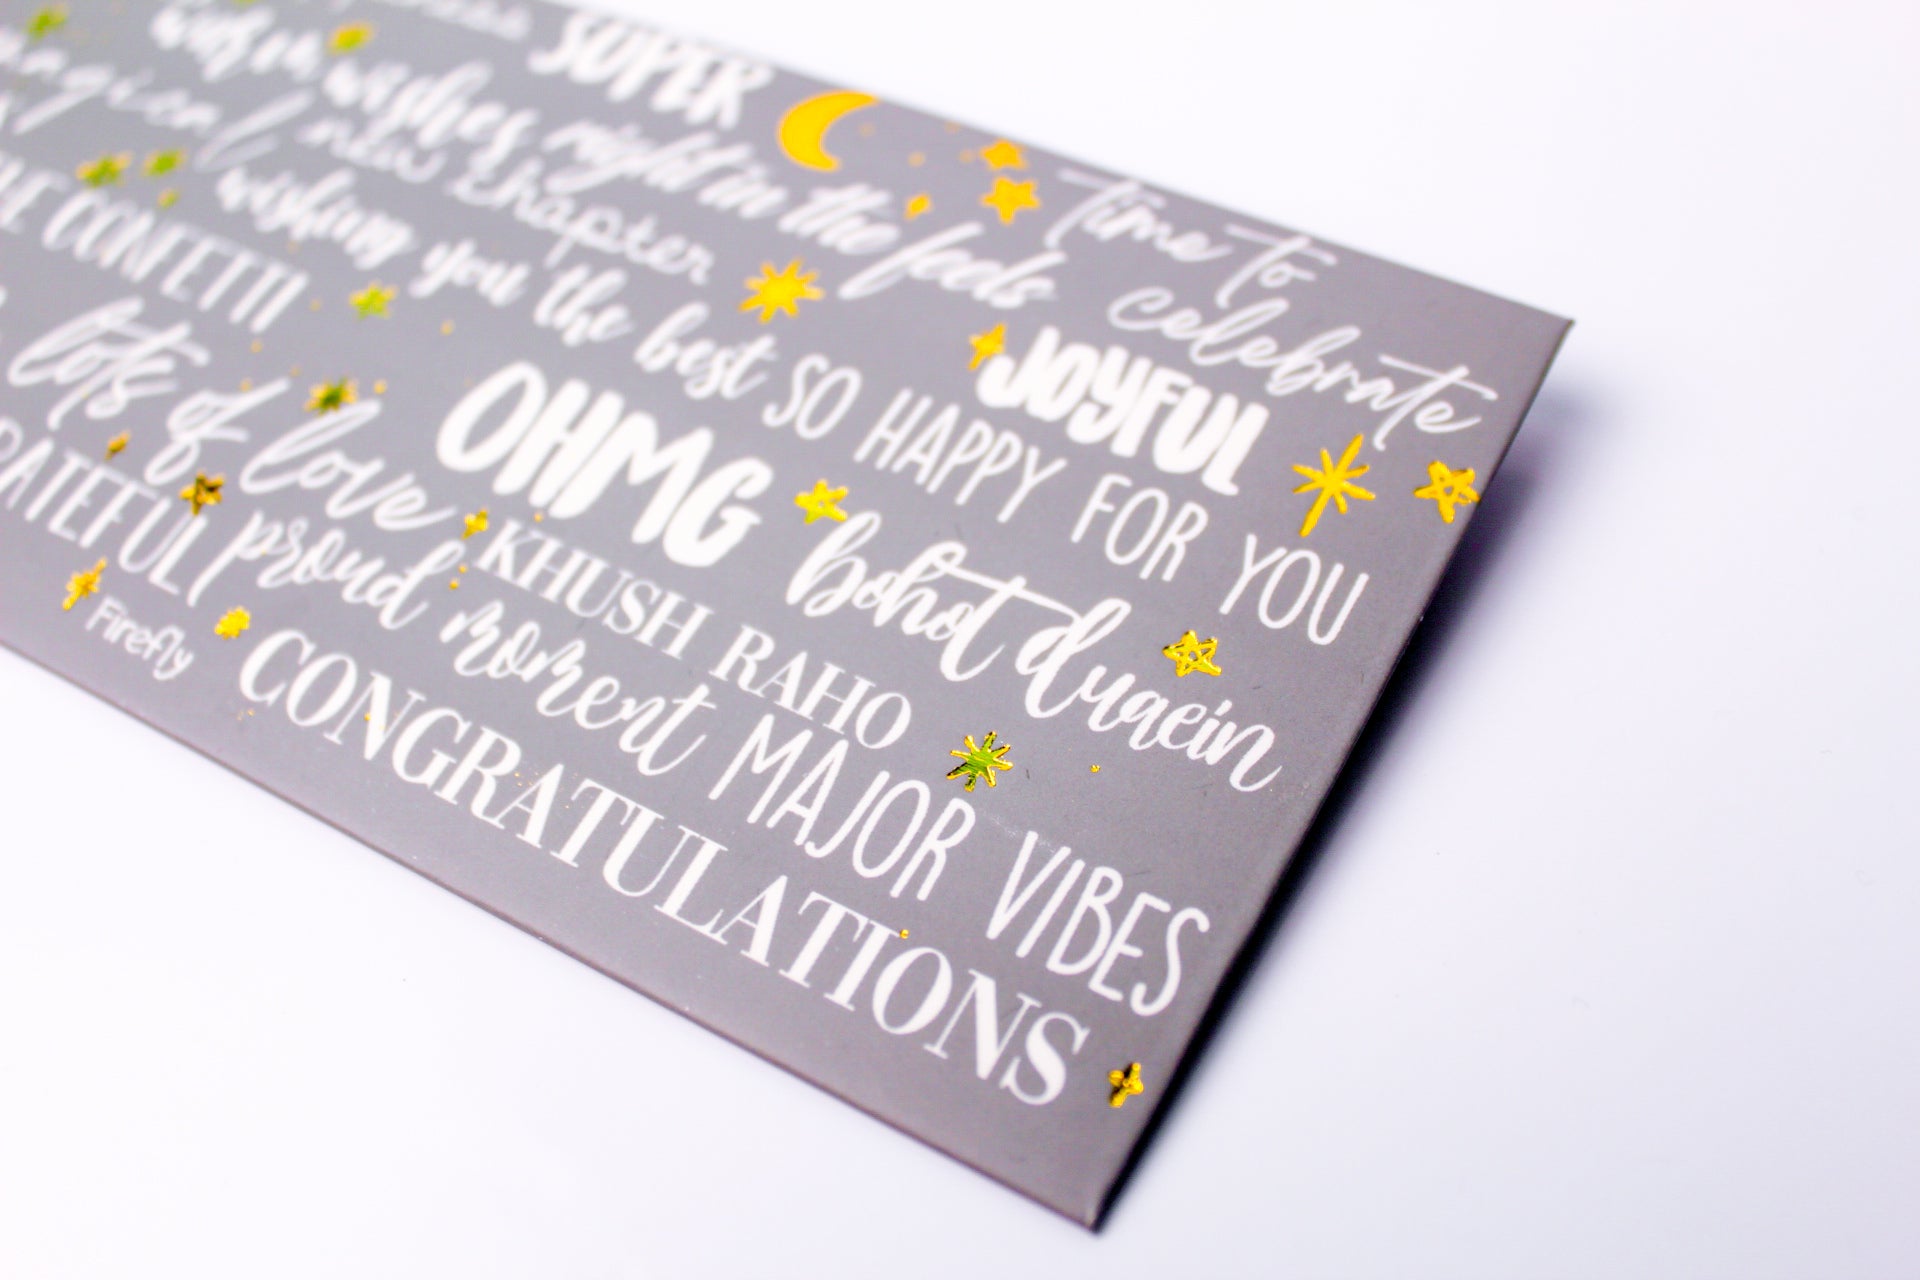 SUPER
wishes right in the feels
time to
celebrate
magical new chapter
JOYFUL
CONFETTI
wishing you the best SO HAPPY FOR YOU
lots of love
OHMG
bohot duaein
KHUSH RAHO
proud moment MAJOR VIBES
Firefly
CONGRATULATIONS